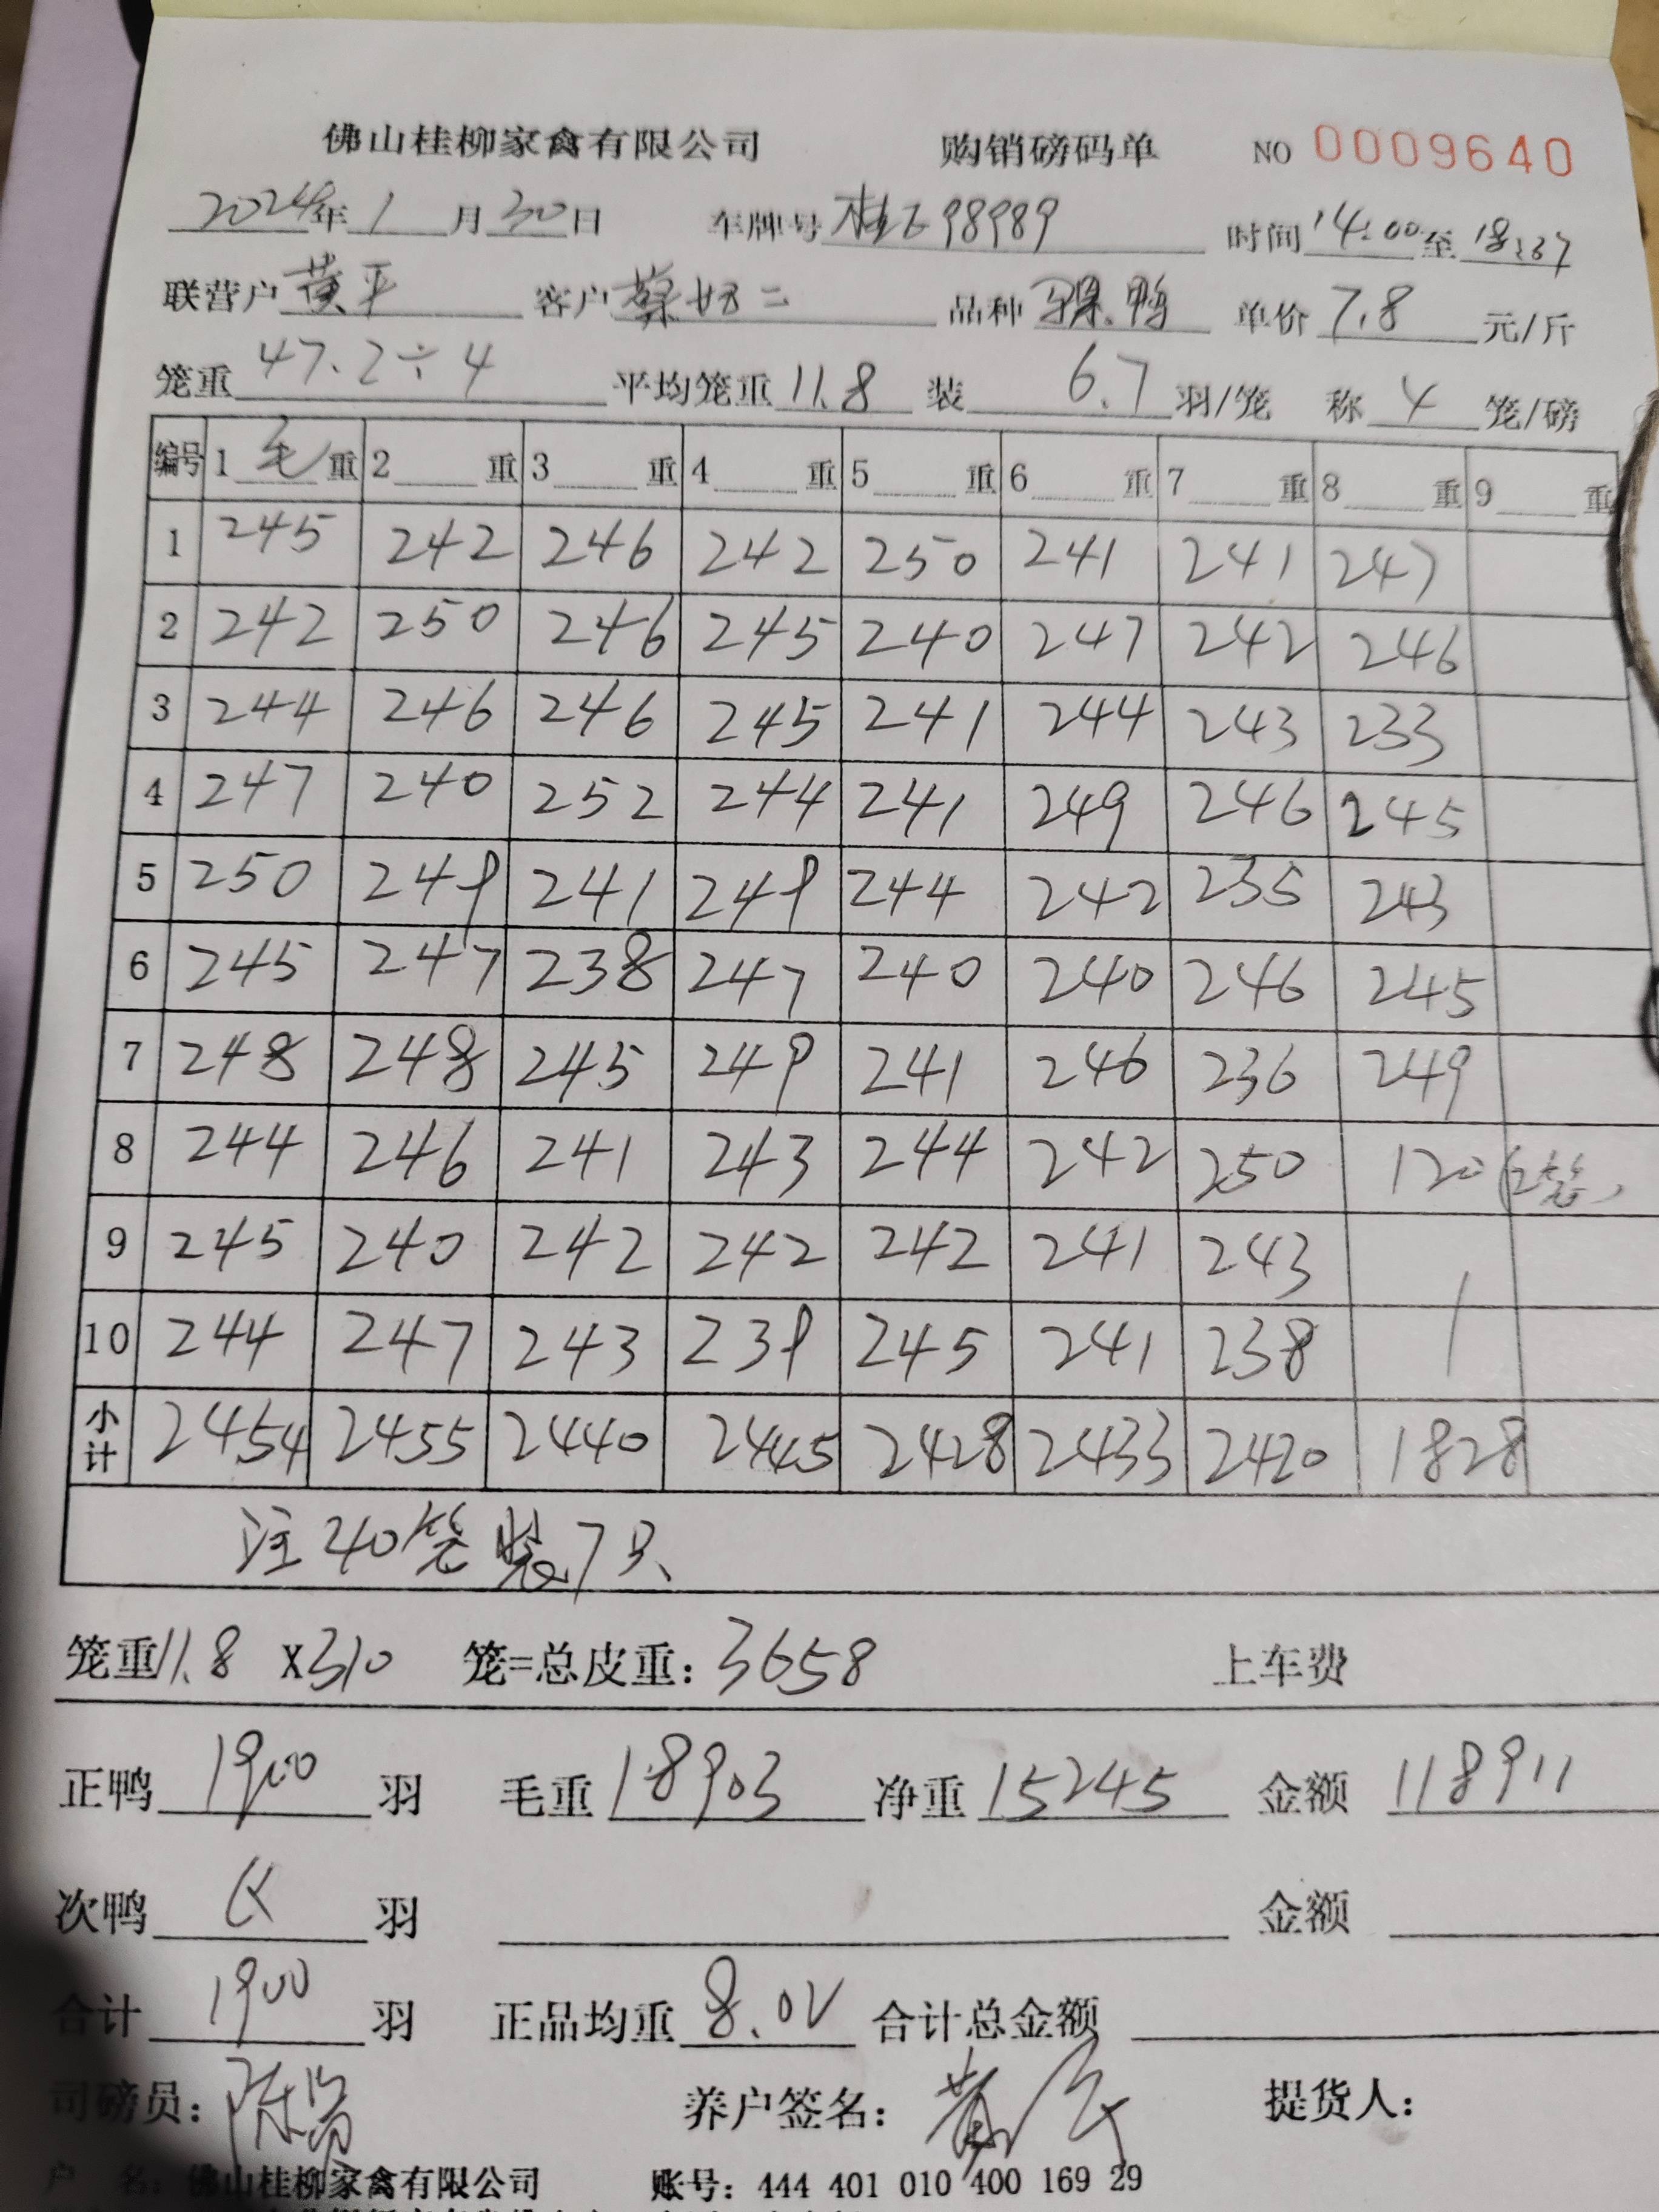 佛山桂柳家禽有限公司 购销磅码单 NO 0009640
2024年 1 月 30 日 车牌号 桂E98989 时间 14:00 至 18:37
联营户 黄平 客户 蔡妃二 品种 骡鸭 单价 7.8 元/斤
笼重 47.2÷4 平均笼重 11.8 装 6.7 羽/笼 称 4 笼/磅
编号 1 毛 重 2 重 3 重 4 重 5 重 6 重 7 重 8 重 9 重
1 245 242 246 242 250 241 241 247
2 242 250 246 245 240 247 242 246
3 244 246 246 245 241 244 243 233
4 247 240 252 244 241 249 246 245
5 250 249 241 249 244 242 235 243
6 245 247 238 247 240 240 246 245
7 248 248 245 249 241 246 236 249
8 244 246 241 243 244 242 250 120 (2笼)
9 245 240 242 242 242 241 243
10 244 247 243 239 245 241 238
小计 2454 2455 2440 2445 2428 2433 2420 1828
注 240笼装7只
笼重 11.8 X 310 笼=总皮重: 3658 上车费
正鸭 1900 羽 毛重 18903 净重 15245 金额 118911
次鸭 羽 金额
合计 1900 羽 正品均重 8.02 合计总金额
司磅员: 养户签名: 提货人:
户 名: 佛山桂柳家禽有限公司 账号: 444 401 010 400 169 29